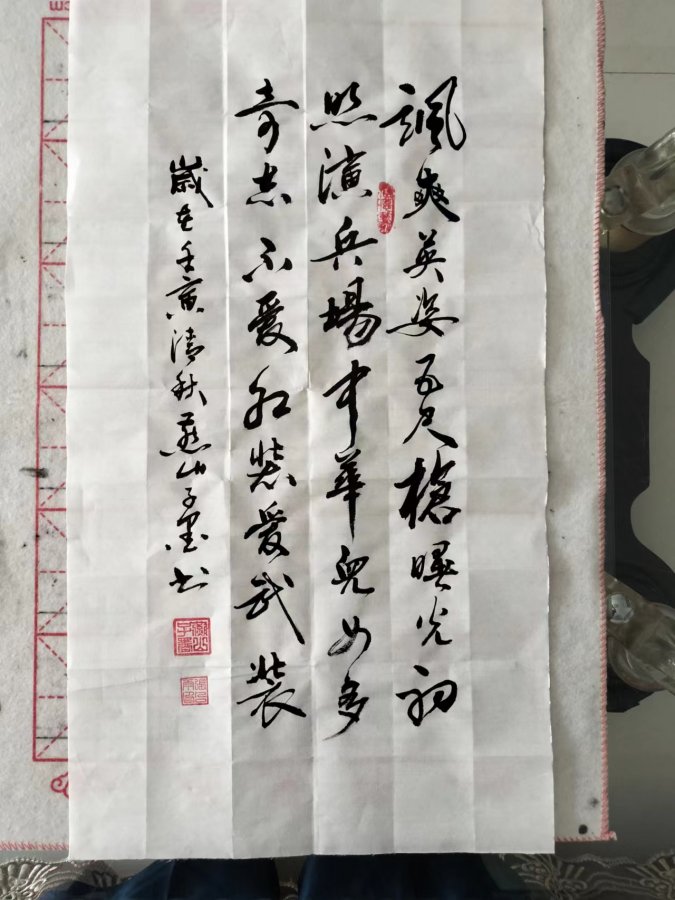 颯爽英姿五尺槍曙光初
照演兵場中華兒女多
奇志不愛红裝愛武裝
歲在壬寅清秋燕山子墨书
cm